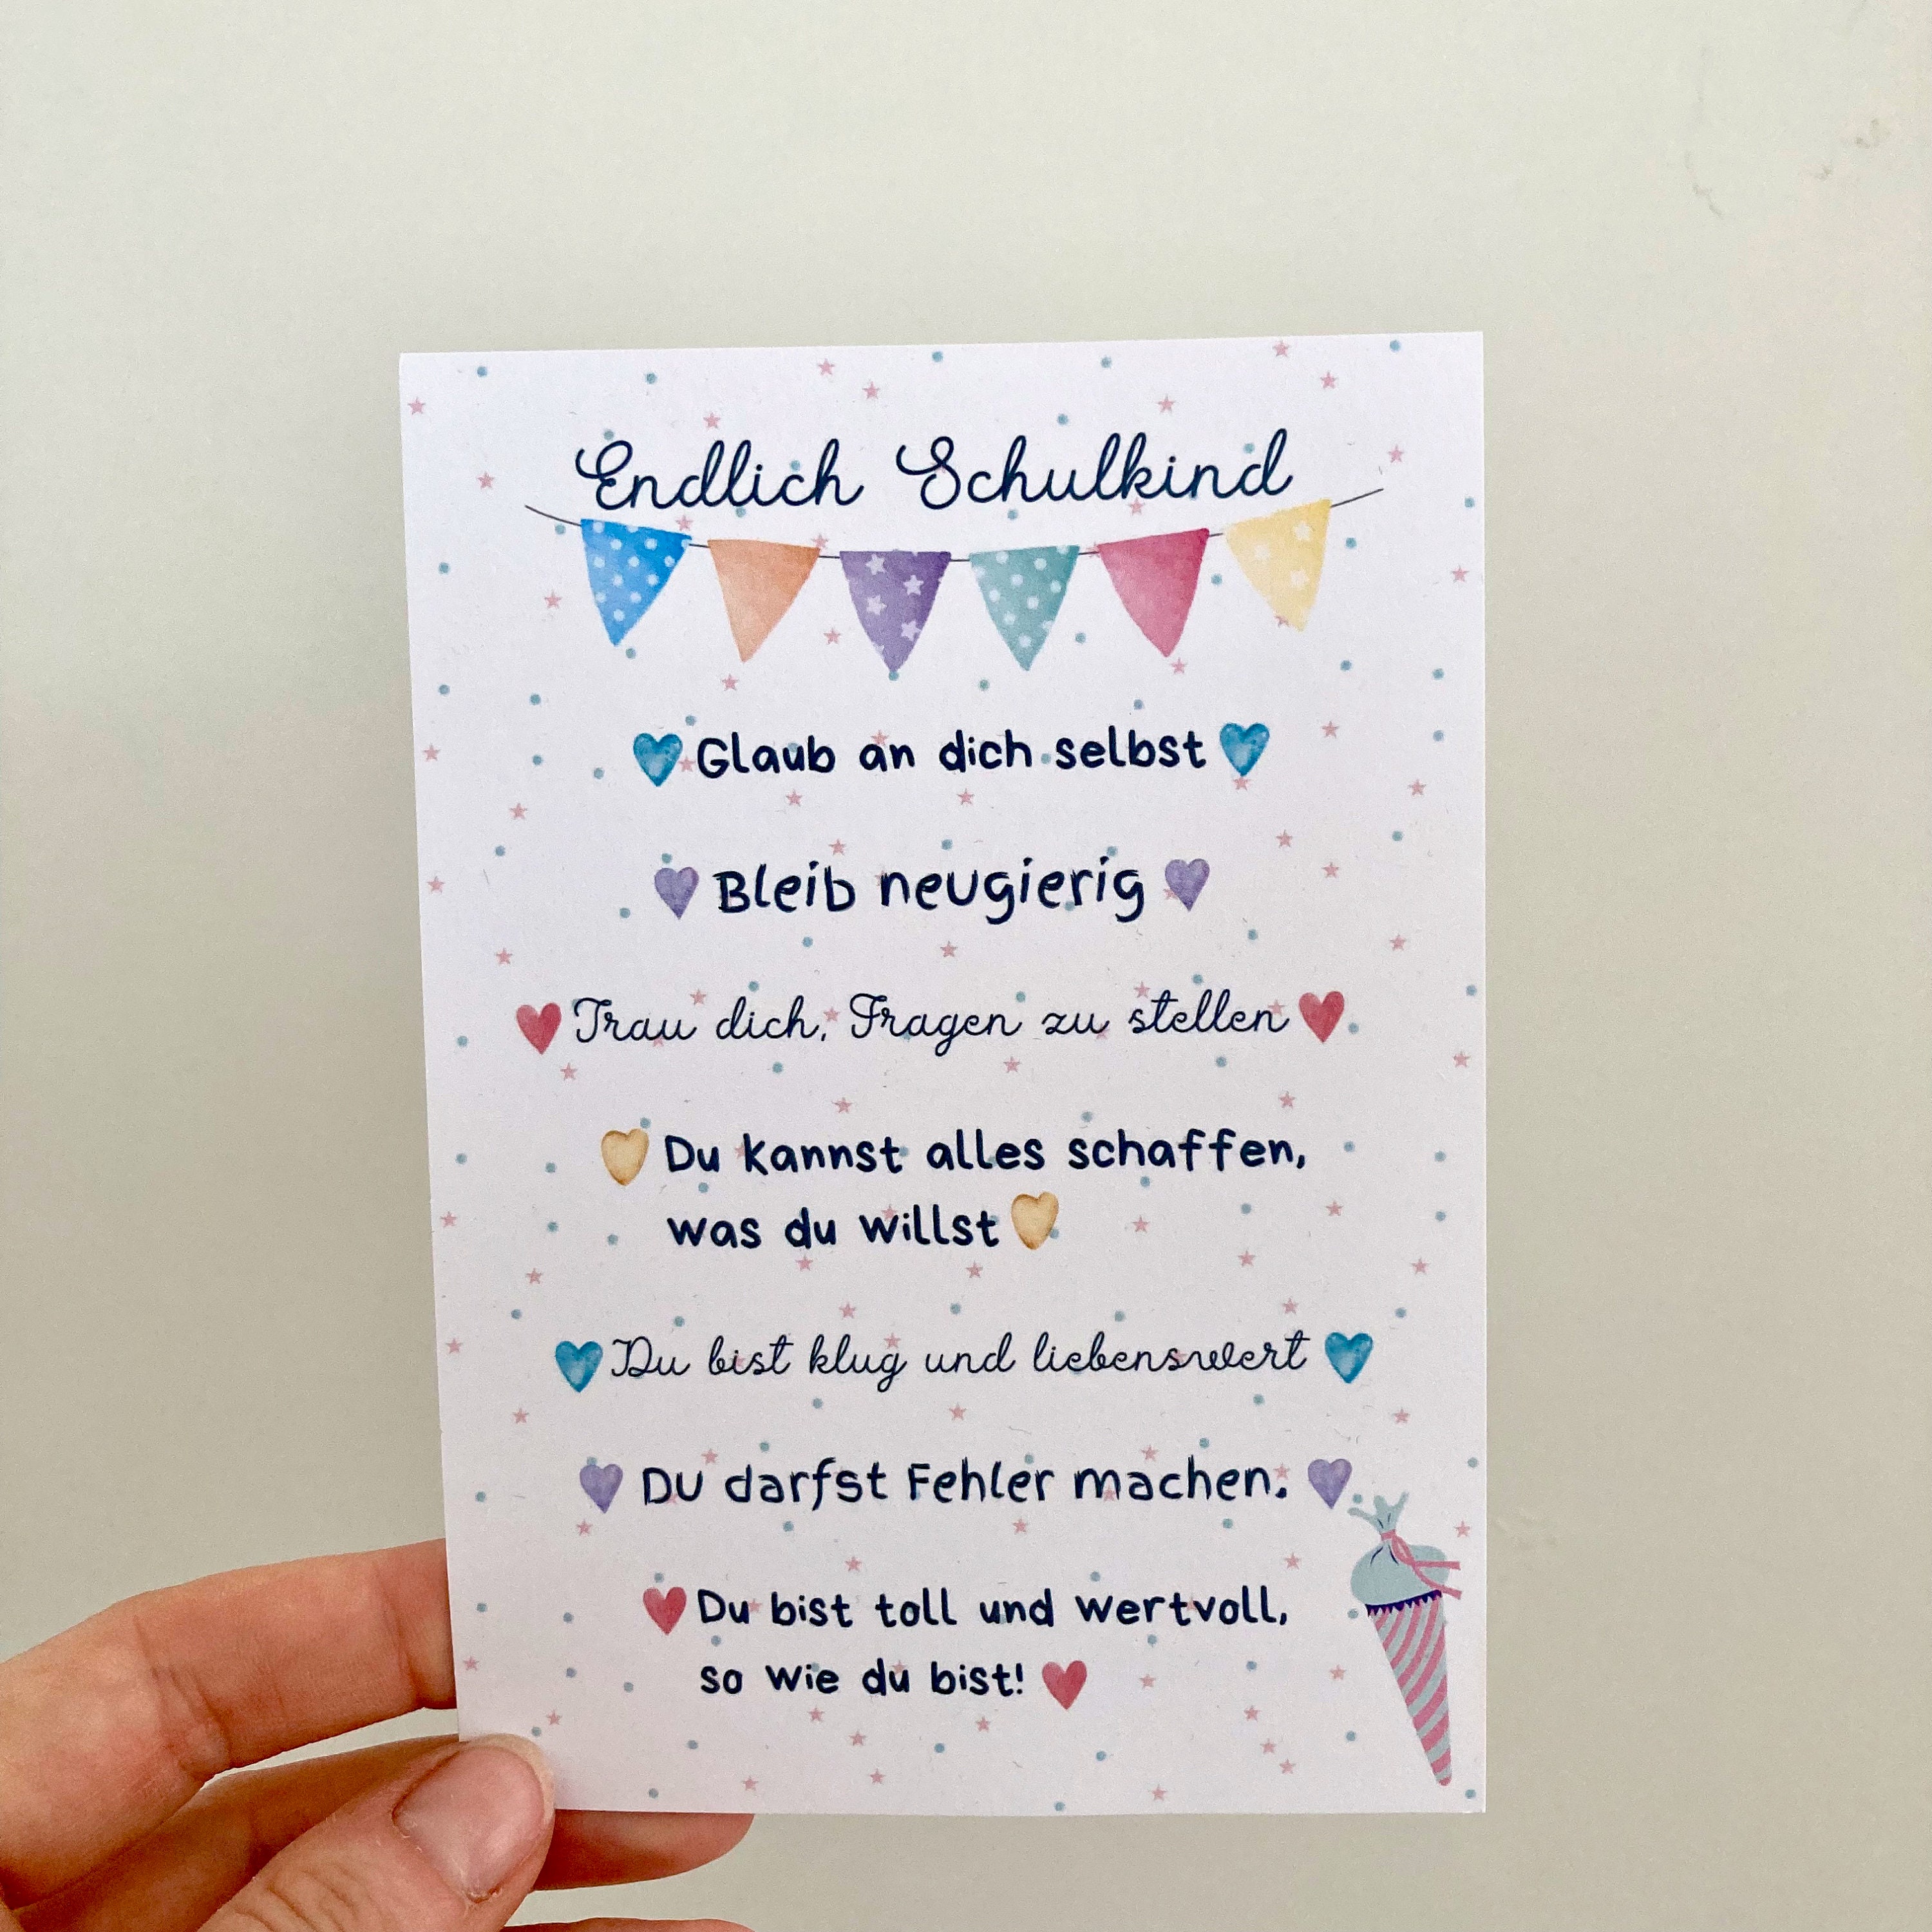 Endlich Schulkind
Glaub an dich selbst
Bleib neugierig
Trau dich, Fragen zu stellen
Du kannst alles schaffen,
was du willst
Du bist klug und liebenswert
Du darfst Fehler machen.
Du bist toll und wertvoll,
so wie du bist!